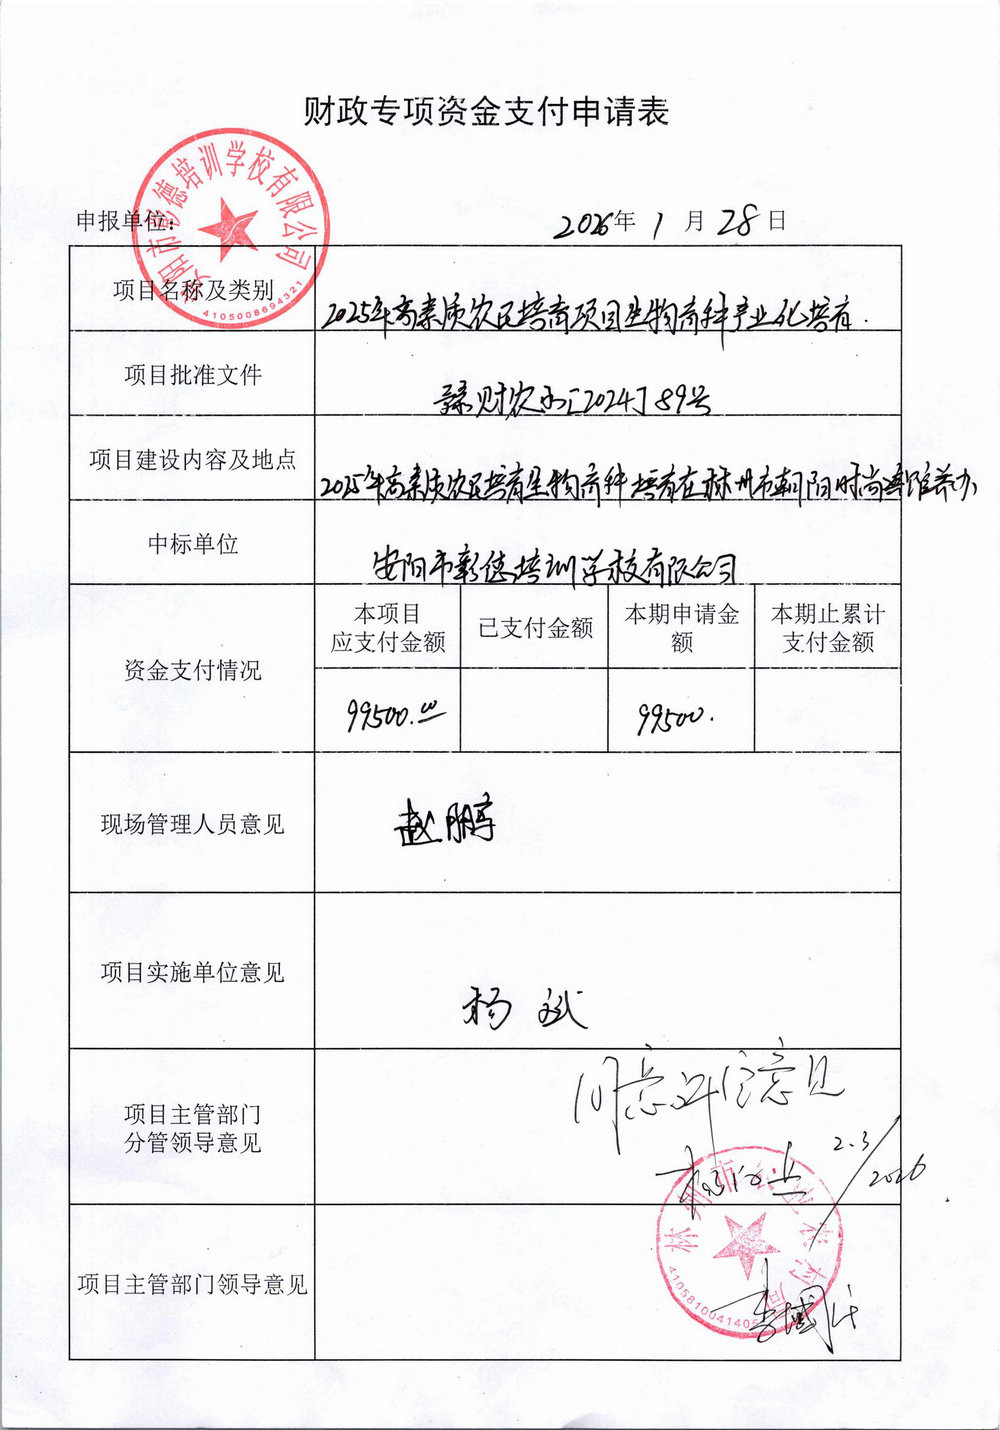 财政专项资金支付申请表
安阳市彰德培训学校有限公司
4105008694321
申报单位:
2026年 1 月 28 日
项目名称及类别
2025年高素质农民培育项目生物育种产业化培育.
项目批准文件
豫财农水[2024]89号
项目建设内容及地点
2025年高素质农民培育生物育种培育在林州市朝阳时尚宾馆举办
中标单位
安阳市彰德培训学校有限公司
资金支付情况
本项目
应支付金额
已支付金额
本期申请金
额
本期止累计
支付金额
99500.00
99500.
现场管理人员意见
赵鹏
项目实施单位意见
杨斌
项目主管部门
分管领导意见
同意评估意见
2.3/2026
林州市农业农村局
4105810041408
项目主管部门领导意见
李国